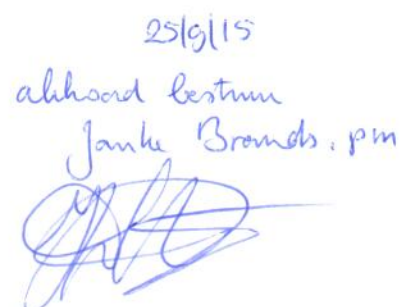 25/9/15
akkoord bestuur
Janke Brands. pm